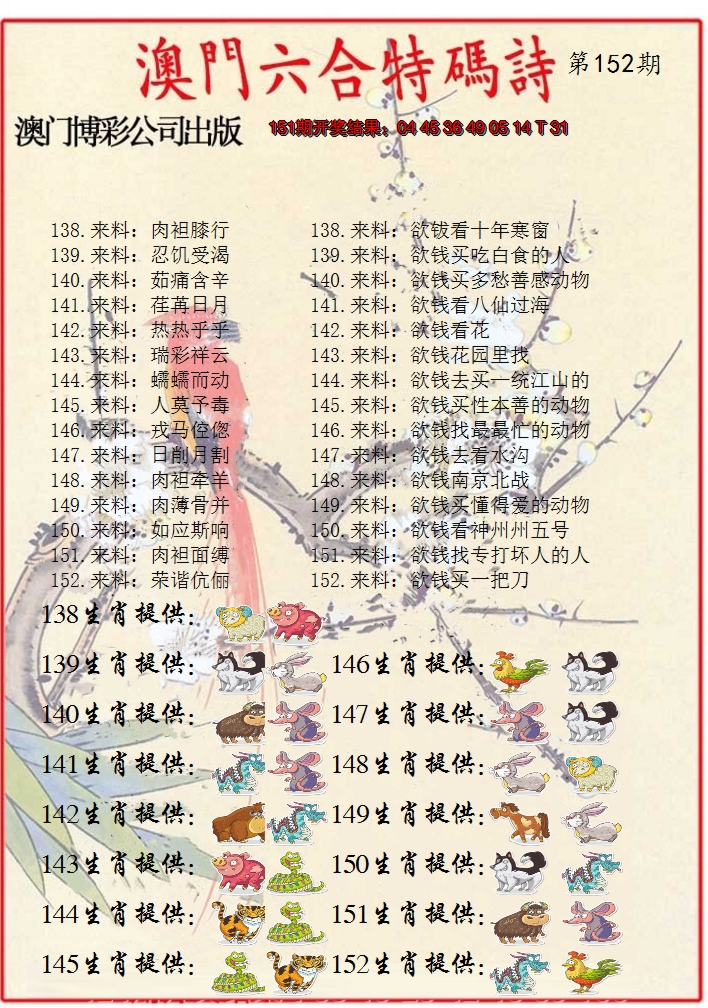 澳門六合特碼詩 第152期
澳门博彩公司出版 151期开奖结果：04 45 36 49 05 14 T 31
138.来料：肉袒膝行 138.来料：欲钹看十年寒窗
139.来料：忍饥受渴 139.来料：欲钱买吃白食的人
140.来料：茹痛含辛 140.来料：欲钱买多愁善感动物
141.来料：荏苒日月 141.来料：欲钱看八仙过海
142.来料：热热乎乎 142.来料：欲钱看花
143.来料：瑞彩祥云 143.来料：欲钱花园里找
144.来料：蠕蠕而动 144.来料：欲钱去买一统江山的
145.来料：人莫予毒 145.来料：欲钱买性本善的动物
146.来料：戎马倥偬 146.来料：欲钱找最最忙的动物
147.来料：日削月割 147.来料：欲钱去看水沟
148.来料：肉袒牵羊 148.来料：欲钱南京北战
149.来料：肉薄骨并 149.来料：欲钱买懂得爱的动物
150.来料：如应斯响 150.来料：欲钱看神州州五号
151.来料：肉袒面缚 151.来料：欲钱找专打坏人的人
152.来料：荣谐伉俪 152.来料：欲钱买一把刀
138生肖提供：
139生肖提供： 146生肖提供：
140生肖提供： 147生肖提供：
141生肖提供： 148生肖提供：
142生肖提供： 149生肖提供：
143生肖提供： 150生肖提供：
144生肖提供： 151生肖提供：
145生肖提供： 152生肖提供：